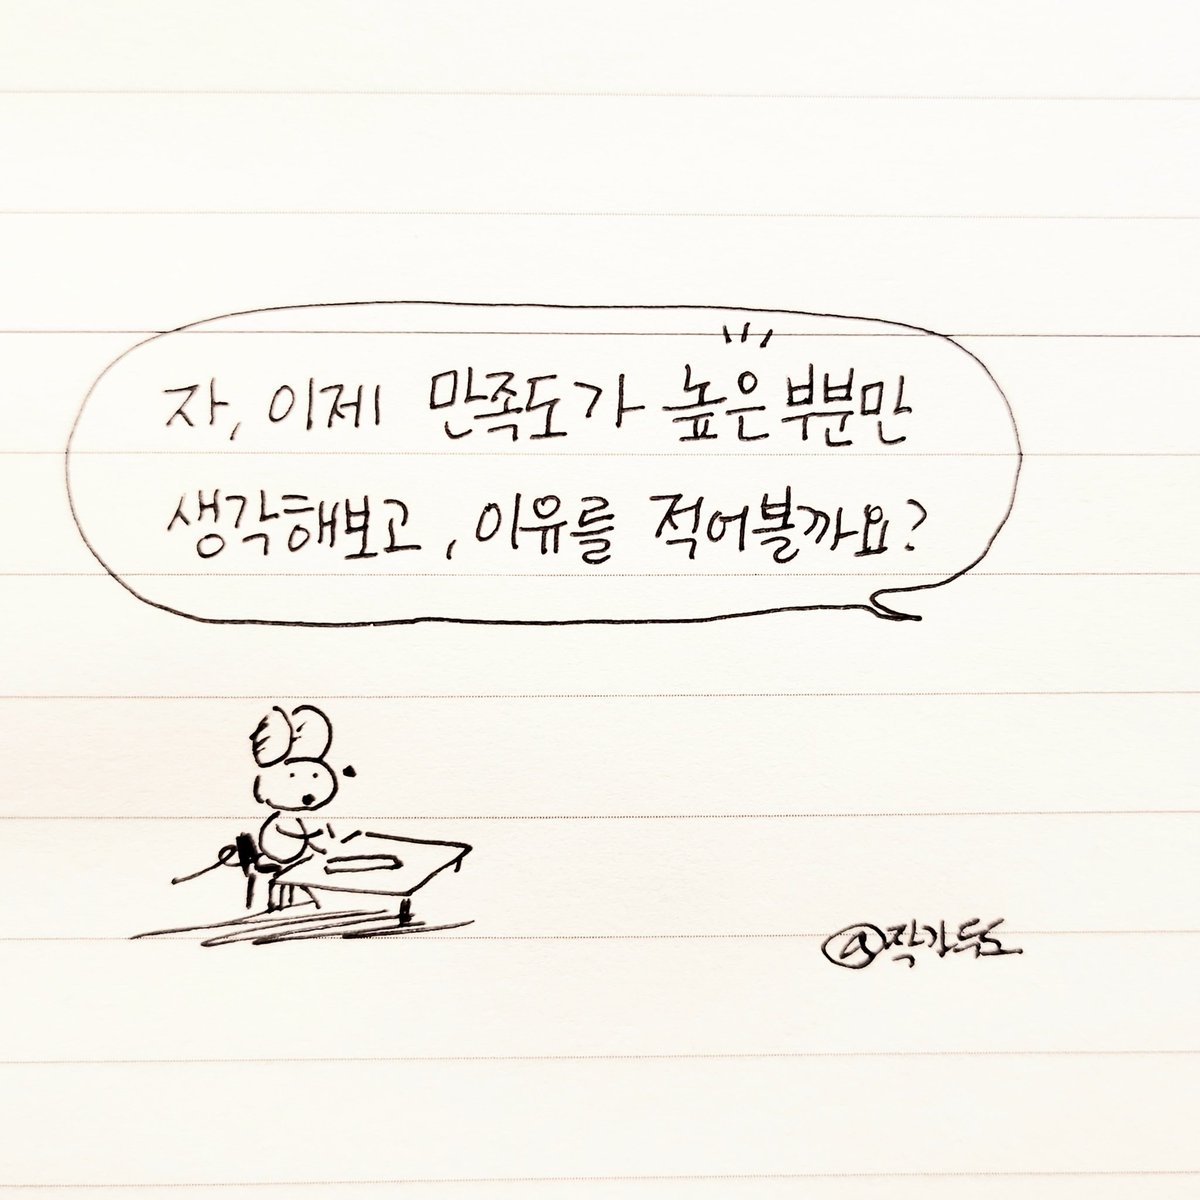 자, 이제 만족도가 높은 부분만
생각해보고, 이유를 적어볼까요?
@작가두도